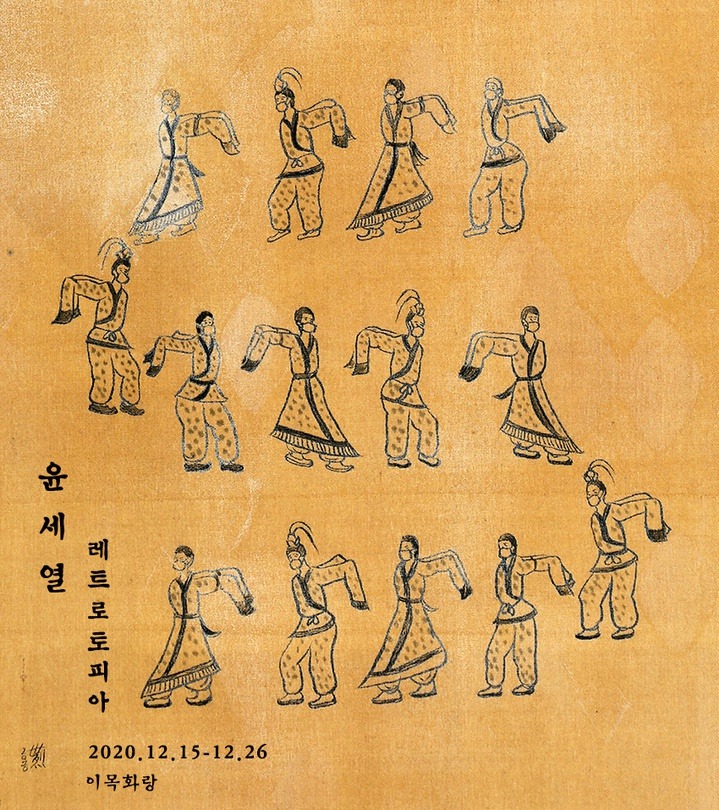 윤세열
레트로토피아
2020.12.15-12.26
이목화랑